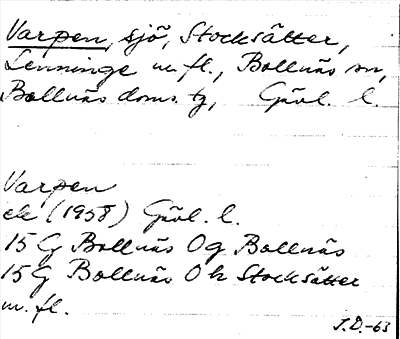 Varpen, sjö, Stocksätter,
Lenninge m.fl., Bollnäs sn,
Bollnäs doms. tg, Gävl. l.
Varpen
ek (1958) Gävl. l.
15 G Bollnäs Og Bollnäs
15 G Bollnäs Oh Stocksätter
m.fl.
J.D.-63